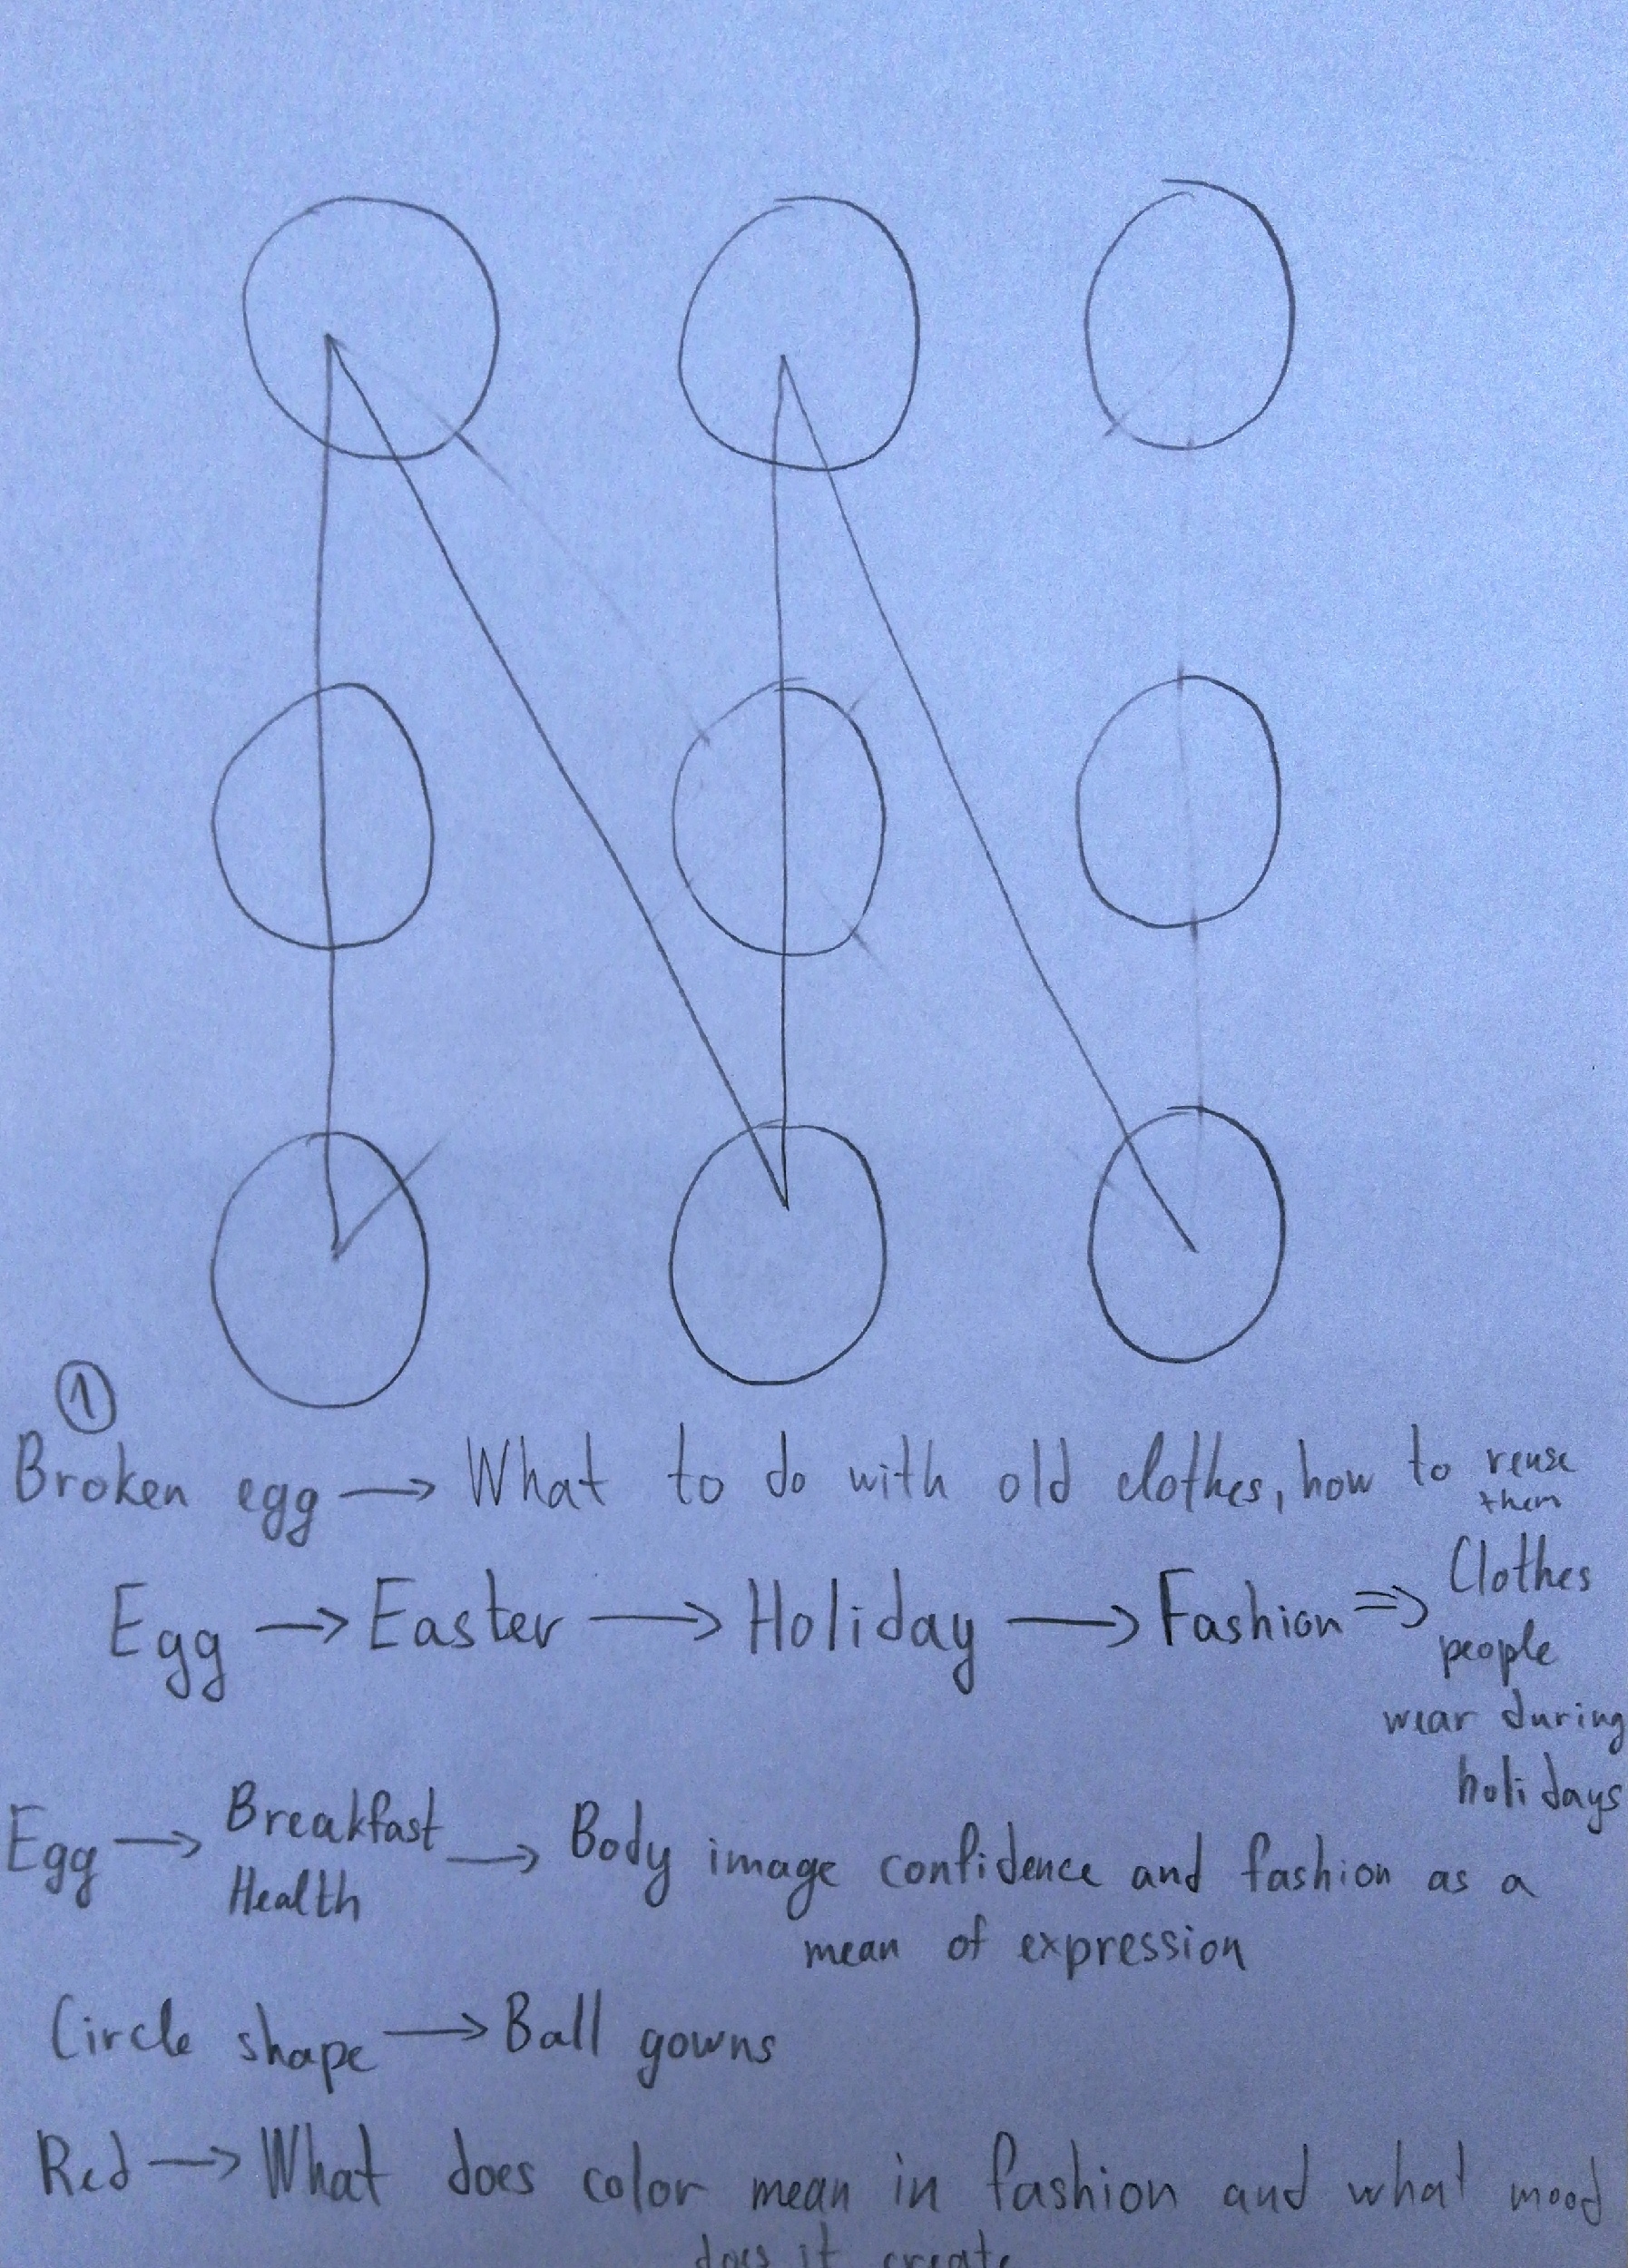 1
Broken egg → What to do with old clothes, how to reuse
them
Egg → Easter → Holiday → Fashion ⇒ Clothes
people
wear during
holidays
Egg → Breakfast
Health → Body image confidence and fashion as a
mean of expression
Circle shape → Ball gowns
Red → What does color mean in fashion and what mood
does it create